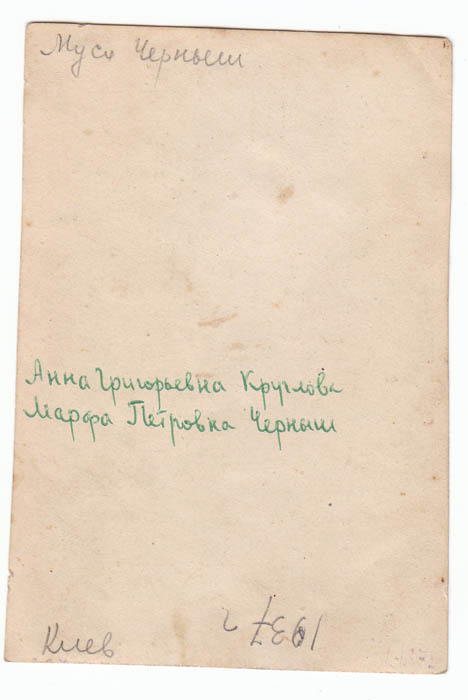 Муся Черныш
Анна Григорьевна Круглова
Марфа Петровна Черныш
Киев
1937 г